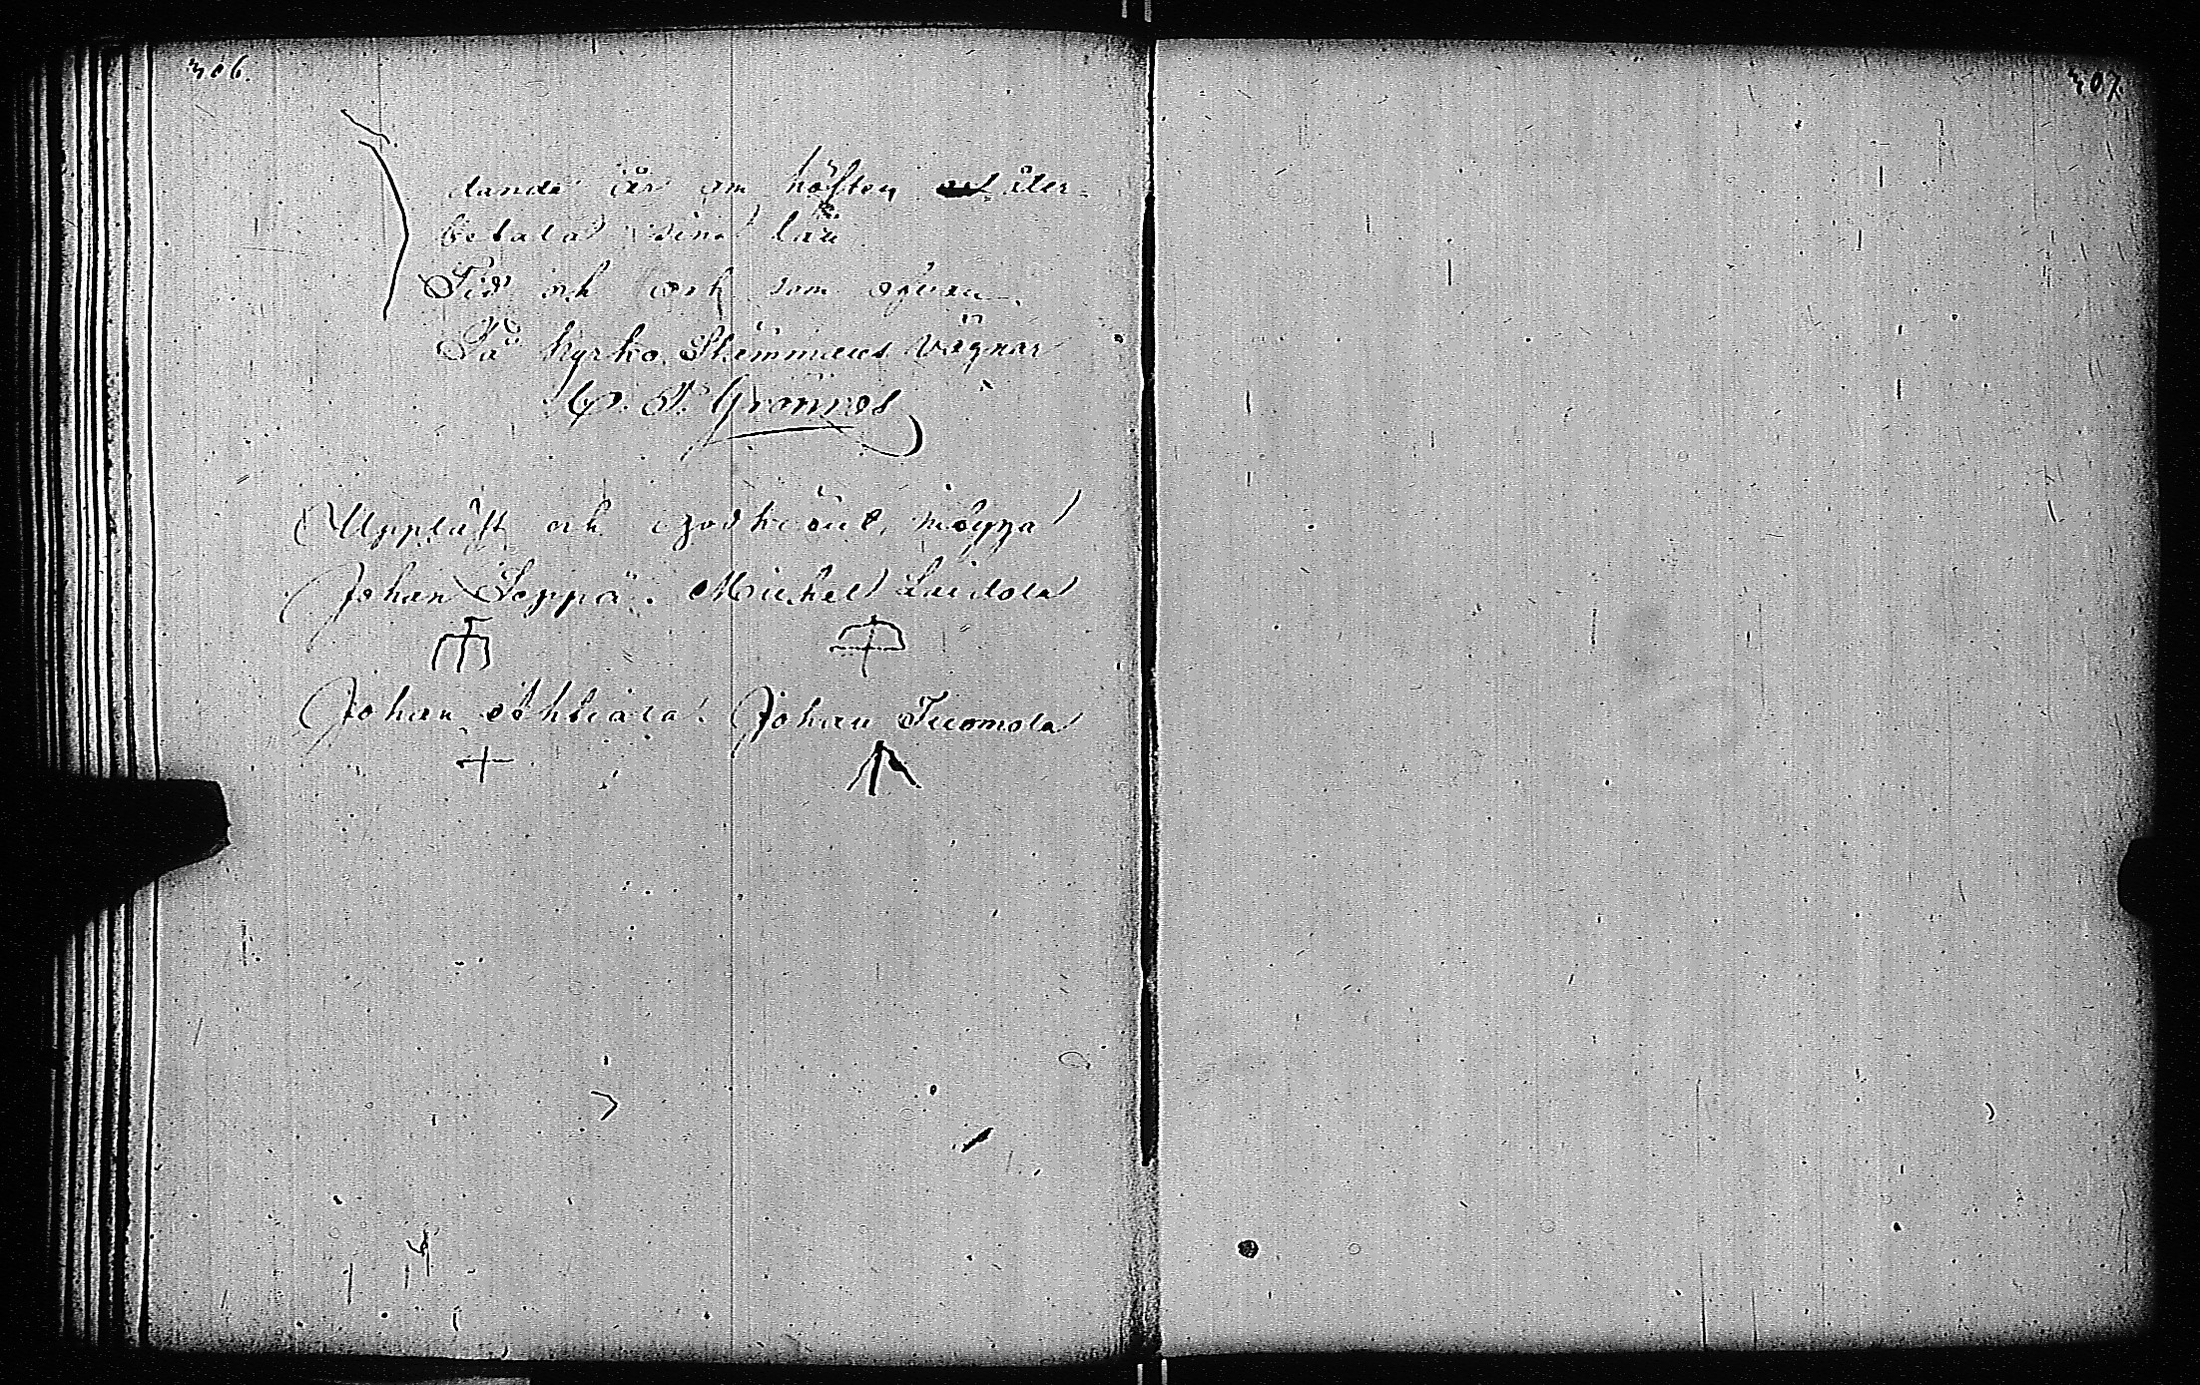 306.
dande år om hösten åter=
betala sina lån
Tid och ort som ofvan.
På Kyrko Stämmans vägnar
Grönroos
Uppläst och godkändt, intyga
Johan Seppä. Michel Luidola
Johan Johan Tuomola
307.